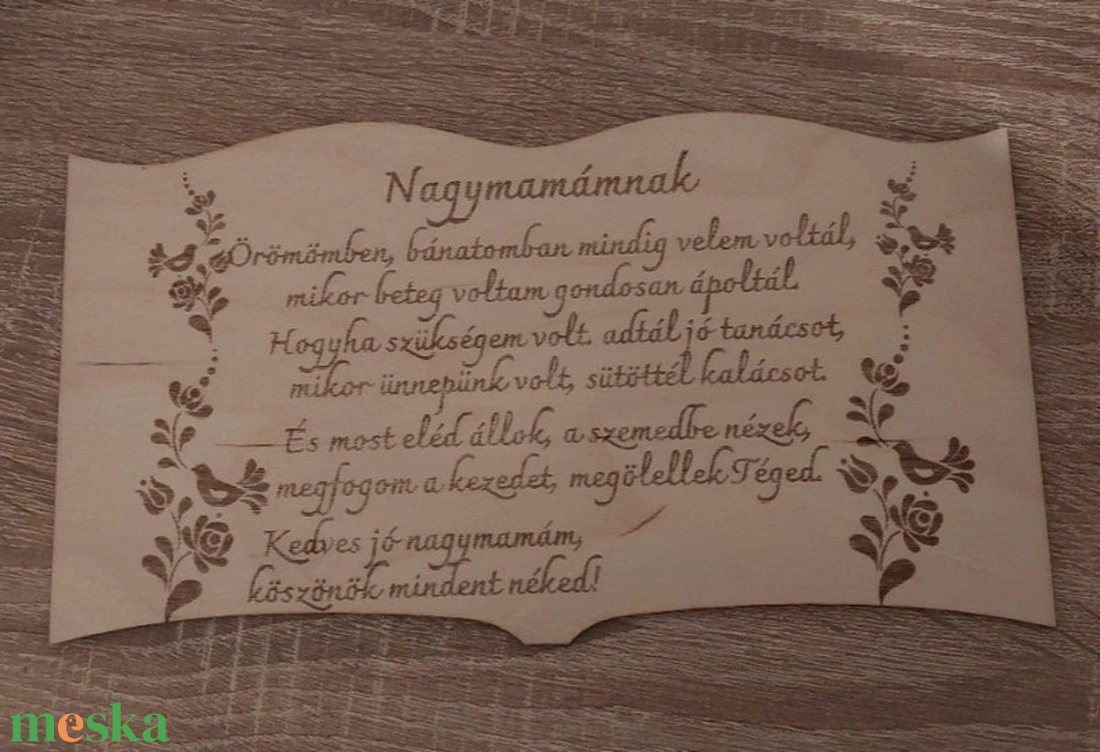 Nagymamámnak
Örömömben, bánatomban mindig velem voltál,
mikor beteg voltam gondosan ápoltál.
Hogyha szükségem volt. adtál jó tanácsot,
mikor ünnepünk volt, sütöttél kalácsot.
És most eléd állok, a szemedbe nézek,
megfogom a kezedet, megölellek Téged.
Kedves jó nagymamám,
köszönök mindent néked!
meska